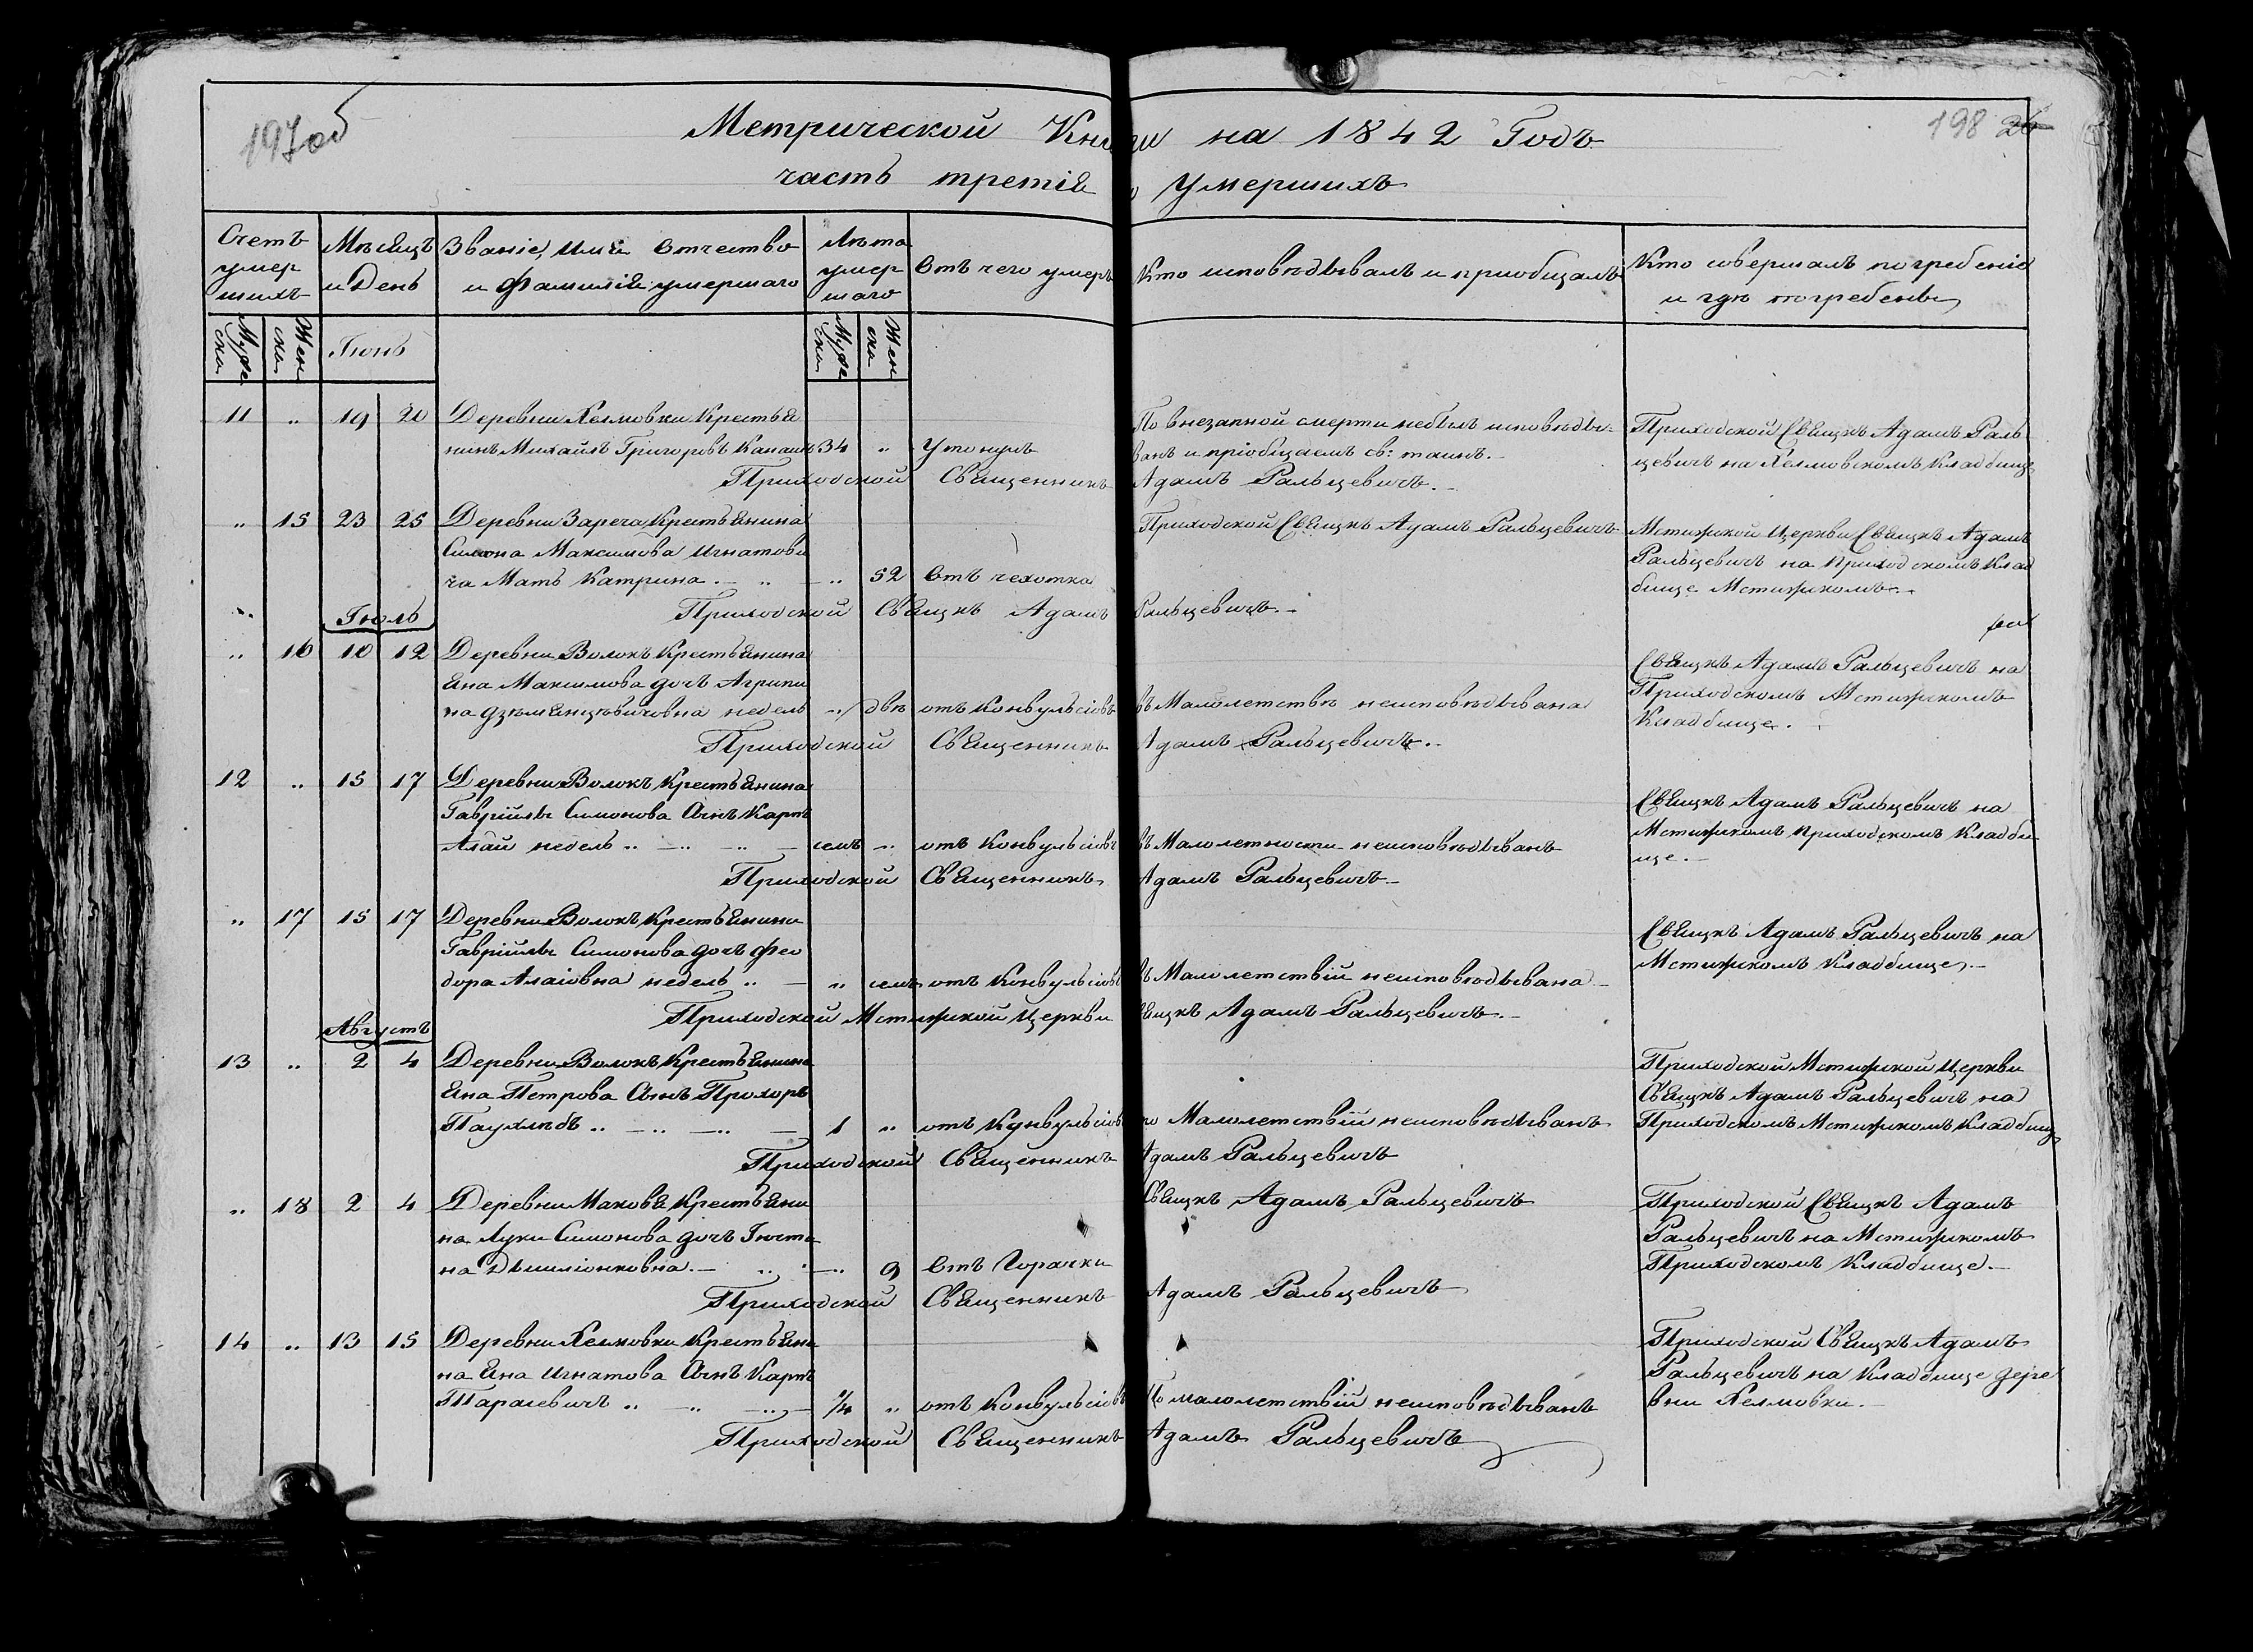 197об
198 26
Метрической Книги на 1842 Годъ
часть третія о Умершихъ
Счетъ умер шихъ
Мѣсяцъ и День
Званіе, имя Отчество и Фамилія умершаго
Лѣта умер шаго
Отъ чего умеръ
Кто исповѣдывалъ и приобщалъ
Кто совершалъ погребеніе и гдѣ погребены
Муже ска
Жен ска
Іюнь
Муже ска
Жен ска
11 .. 19 20 Деревни Хелмовки Крестья
нинъ Михайлъ Григоровъ 34 .. Утонулъ
По внезапной смерти небылъ исповѣды-
ванъ и пріобщаемъ св: таинъ.
Приходской Свящкъ Адамъ Раль
цевичъ на Хелмовскомъ Кладбище
Приходской Священникъ Адамъ Ральцевичъ.
.. 15 23 25 Деревни Зареча Крестьянина
Симона Максимова Игнатови
ча Мать Катрина .. 52 Отъ чехотка
Приходской Свящкъ Адамъ Ральцевичъ
Мстижской Церкви Свящкъ Адамъ
Ральцевичъ на Приходскомъ Клад
бище Мстижскомъ.
Приходской Свящкъ Адамъ Ральцевичъ.
Іюль
.. 16 10 12 Деревни Волокъ Крестьянина
Яна Максимова дочъ Агрипи
на недель .. двѣ отъ Конвульсіовъ
въ Малолетствѣ неисповѣдывана
Свящкъ Адамъ Ральцевичъ на
Приходскомъ Мстижскомъ
Кладбище.
Приходской Священникъ Адамъ Ральцевичъ.
12 .. 15 17 Деревни Волокъ Крестьянина
Гавріила Симонова Сынъ Карпъ
Алай недель .. семъ .. отъ Конвульсіовъ
въ Малолетности неисповѣдыванъ
Свящкъ Адамъ Ральцевичъ на
Мстижскомъ Приходскомъ Кладби-
ще.
Приходской Священникъ Адамъ Ральцевичъ
.. 17 15 17 Деревни Волокъ Крестьянина
Гавріила Симонова дочъ Фео
дора Алаіовна недель .. семъ отъ Конвульсіовъ
въ Малолетствіи неисповѣдывана
Свящкъ Адамъ Ральцевичъ на
Мстижскомъ Кладбище.
Приходской Мстижской Церкви Свящкъ Адамъ Ральцевичъ.
Августъ
13 .. 2 4 Деревни Волокъ Крестьянина
Яна Петрова Сынъ Прохоръ
Паухлѣбъ .. 1 .. отъ Кунвульсіовъ
по Малолетствіи неисповѣдыванъ
Приходской Мстижской Церкви
Свящкъ Адамъ Ральцевичъ на
Приходскомъ Мстижскомъ Кладбище
Приходской Священникъ Адамъ Ральцевичъ
.. 18 2 4 Деревни Маковя Крестьяни
на Луки Симонова дочъ Іюсти
на .. 9 Отъ Горачки
Свящкъ Адамъ Ральцевичъ
Приходской Свящкъ Адамъ
Ральцевичъ на Мстижскомъ
Приходскомъ Кладбище.
Приходской Священникъ Адамъ Ральцевичъ
14 .. 13 15 Деревни Хелмовки Крестьяни
на Яна Игнатова Сынъ Карпъ
Тарасевичъ .. 1/4 .. отъ Конвульсіовъ
По малолетствіи неисповѣдыванъ
Приходской Свящкъ Адамъ
Ральцевичъ на Кладбище дере
вни Хелмовки.
Приходской Священникъ Адамъ Ральцевичъ